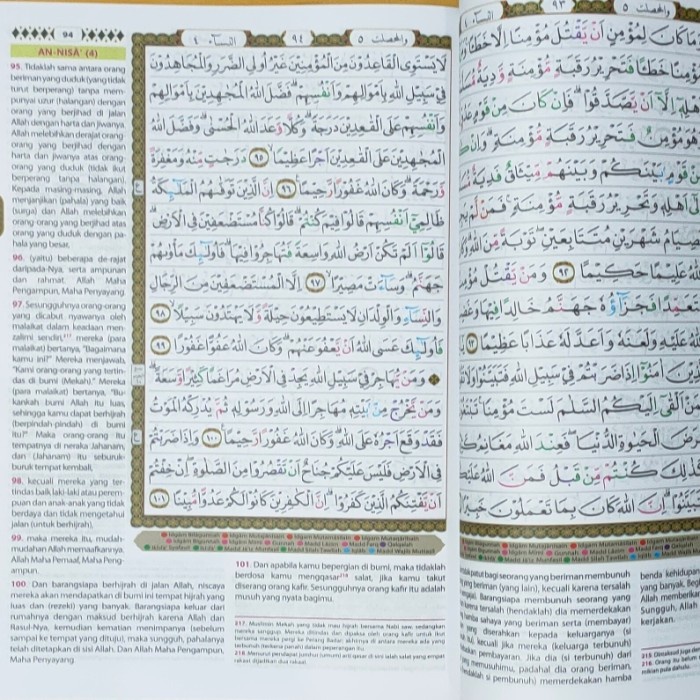 94
AN-NISĀ' (4)
95. Tidaklah sama antara orang
beriman yang duduk (yang tidak
turut berperang) tanpa mem-
punyai uzur (halangan) dengan
orang yang berjihad di jalan
Allah dengan harta dan jiwanya.
Allah melebihkan derajat orang-
orang yang berjihad dengan
harta dan jiwanya atas orang-
orang yang duduk (tidak ikut
berperang tanpa halangan).
Kepada masing-masing, Allah
menjanjikan (pahala) yang baik
(surga) dan Allah melebihkan
orang-orang yang berjihad atas
orang yang duduk dengan pa-
hala yang besar,
96. (yaitu) beberapa de-rajat
daripada-Nya, serta ampunan
dan rahmat. Allah Maha
Pengampun, Maha Penyayang.
97. Sesungguhnya orang-orang
yang dicabut nyawanya oleh
malaikat dalam keadaan men-
zalimi sendiri,²¹⁷ mereka (para
malaikat) bertanya, "Bagaimana
kamu ini?" Mereka menjawab,
"Kami orang-orang yang tertin-
das di bumi (Mekah)." Mereka
(para malaikat) bertanya, "Bu-
kankah bumi Allah itu luas,
sehingga kamu dapat berhijrah
(berpindah-pindah) di bumi
itu?" Maka orang-orang itu
tempatnya di neraka Jahanam,
dan (Jahanam) itu seburuk-
buruk tempat kembali,
98. kecuali mereka yang ter-
tindas baik laki-laki atau perem-
puan dan anak-anak yang tidak
berdaya dan tidak mengetahui
jalan (untuk berhijrah),
99. maka mereka itu, mudah-
mudahan Allah memaafkannya.
Allah Maha Pemaaf, Maha Peng-
ampun.
100. Dan barangsiapa berhijrah di jalan Allah, niscaya
mereka akan mendapatkan di bumi ini tempat hijrah yang
luas dan (rezeki) yang banyak. Barangsiapa keluar dari
rumahnya dengan maksud berhijrah karena Allah dan
Rasul-Nya, kemudian kematian menimpanya (sebelum
sampai ke tempat yang dituju), maka sungguh, pahalanya
telah ditetapkan di sisi Allah. Dan Allah Maha Pengampun,
Maha Penyayang.
والمحصنت ٥
٩٤
النسآء ٤
لَا يَسْتَوِى الْقَاعِدُوْنَ مِنَ الْمُؤْمِنِيْنَ غَيْرُ اُولِى الضَّرَرِ وَالْمُجَاهِدُوْنَ
فِيْ سَبِيْلِ اللّٰهِ بِاَمْوَالِهِمْ وَاَنْفُسِهِمْ ۗ فَضَّلَ اللّٰهُ الْمُجٰهِدِيْنَ بِاَمْوَالِهِمْ
وَاَنْفُسِهِمْ عَلَى الْقٰعِدِيْنَ دَرَجَةً ۗ وَكُلًّا وَّعَدَ اللّٰهُ الْحُسْنٰى ۗ وَفَضَّلَ اللّٰهُ
الْمُجٰهِدِيْنَ عَلَى الْقٰعِدِيْنَ اَجْرًا عَظِيْمًا ۙ ٩٥ دَرَجٰتٍ مِّنْهُ وَمَغْفِرَةً
وَّرَحْمَةً ۗ وَكَانَ اللّٰهُ غَفُوْرًا رَّحِيْمًا ࣖ ٩٦ اِنَّ الَّذِيْنَ تَوَفّٰىهُمُ الْمَلٰۤىِٕكَةُ
ظَالِمِيْٓ اَنْفُسِهِمْ قَالُوْا فِيْمَ كُنْتُمْ ۗ قَالُوْا كُنَّا مُسْتَضْعَفِيْنَ فِى الْاَرْضِ ۗ
قَالُوْٓا اَلَمْ تَكُنْ اَرْضُ اللّٰهِ وَاسِعَةً فَتُهَاجِرُوْا فِيْهَا ۗ فَاُولٰۤىِٕكَ مَأْوٰىهُمْ
جَهَنَّمُ ۗ وَسَاۤءَتْ مَصِيْرًا ۙ ٩٧ اِلَّا الْمُسْتَضْعَفِيْنَ مِنَ الرِّجَالِ
وَالنِّسَاۤءِ وَالْوِلْدَانِ لَا يَسْتَطِيْعُوْنَ حِيْلَةً وَّلَا يَهْتَدُوْنَ سَبِيْلًا ۙ ٩٨
فَاُولٰۤىِٕكَ عَسَى اللّٰهُ اَنْ يَّعْفُوَ عَنْهُمْ ۗ وَكَانَ اللّٰهُ عَفُوًّا غَفُوْرًا ٩٩
۞ وَمَنْ يُّهَاجِرْ فِيْ سَبِيْلِ اللّٰهِ يَجِدْ فِى الْاَرْضِ مُرَاغَمًا كَثِيْرًا وَّسَعَةً ۗ
وَمَنْ يَّخْرُجْ مِنْۢ بَيْتِهٖ مُهَاجِرًا اِلَى اللّٰهِ وَرَسُوْلِهٖ ثُمَّ يُدْرِكْهُ الْمَوْتُ
فَقَدْ وَقَعَ اَجْرُهٗ عَلَى اللّٰهِ ۗ وَكَانَ اللّٰهُ غَفُوْرًا رَّحِيْمًا ࣖ ١٠٠ وَاِذَا ضَرَبْتُمْ
فِى الْاَرْضِ فَلَيْسَ عَلَيْكُمْ جُنَاحٌ اَنْ تَقْصُرُوْا مِنَ الصَّلٰوةِ ۖ اِنْ خِفْتُمْ
اَنْ يَّفْتِنَكُمُ الَّذِيْنَ كَفَرُوْا ۗ اِنَّ الْكٰفِرِيْنَ كَانُوْا لَكُمْ عَدُوًّا مُّبِيْنًا ١٠١
101. Dan apabila kamu bepergian di bumi, maka tidaklah
berdosa kamu mengqasar²¹⁸ salat, jika kamu takut
diserang orang kafir. Sesungguhnya orang kafir itu adalah
musuh yang nyata bagimu.
والمحصنت ٥
٩٣
النسآء ٤
كَانَ لِمُؤْمِنٍ اَنْ يَّقْتُلَ مُؤْمِنًا اِلَّا خَطَـًٔا
مُؤْمِنًا خَطَـًٔا فَتَحْرِيْرُ رَقَبَةٍ مُّؤْمِنَةٍ وَّدِيَةٌ
اِلَّآ اَنْ يَّصَّدَّقُوْا ۗ فَاِنْ كَانَ مِنْ قَوْمٍ
وَهُوَ مُؤْمِنٌ فَتَحْرِيْرُ رَقَبَةٍ مُّؤْمِنَةٍ ۗ وَاِنْ
مِنْ قَوْمٍۢ بَيْنَكُمْ وَبَيْنَهُمْ مِّيْثَاقٌ فَدِيَةٌ
اِلٰٓى اَهْلِهٖ وَتَحْرِيْرُ رَقَبَةٍ مُّؤْمِنَةٍ ۚ فَمَنْ لَّمْ
فَصِيَامُ شَهْرَيْنِ مُتَتَابِعَيْنِ ۖ تَوْبَةً مِّنَ اللّٰهِ
اللّٰهُ عَلِيْمًا حَكِيْمًا ٩٢ وَمَنْ يَّقْتُلْ مُؤْمِنًا
فَجَزَاۤؤُهٗ جَهَنَّمُ خَالِدًا فِيْهَا
اللّٰهُ عَلَيْهِ وَلَعَنَهٗ وَاَعَدَّ لَهٗ عَذَابًا عَظِيْمًا ٩٣
اٰمَنُوْٓا اِذَا ضَرَبْتُمْ فِيْ سَبِيْلِ اللّٰهِ فَتَبَيَّنُوْا
اَلْقٰىٓ اِلَيْكُمُ السَّلٰمَ لَسْتَ مُؤْمِنًا
الْحَيٰوةِ الدُّنْيَا ۖ فَعِنْدَ اللّٰهِ مَغَانِمُ
كَذٰلِكَ كُنْتُمْ مِّنْ قَبْلُ فَمَنَّ اللّٰهُ عَلَيْكُمْ
اِنَّ اللّٰهَ كَانَ بِمَا تَعْمَلُوْنَ خَبِيْرًا
bagi seorang yang beriman membunuh
yang beriman (yang lain), kecuali karena tersalah
Barangsiapa membunuh seorang yang
karena tersalah (hendaklah) dia memerdekakan
hamba sahaya yang beriman serta (membayar)
yang diserahkan kepada keluarganya (si
kecuali jika mereka (keluarga terbunuh)
pembayaran. Jika dia (si terbunuh) dari
memusuhimu, padahal dia orang beriman,
(hendaklah si pembunuh) memerdekakan hamba
benda kehidupan
yang banyak.
Allah memberikan
Sungguh, Allah
kerjakan.